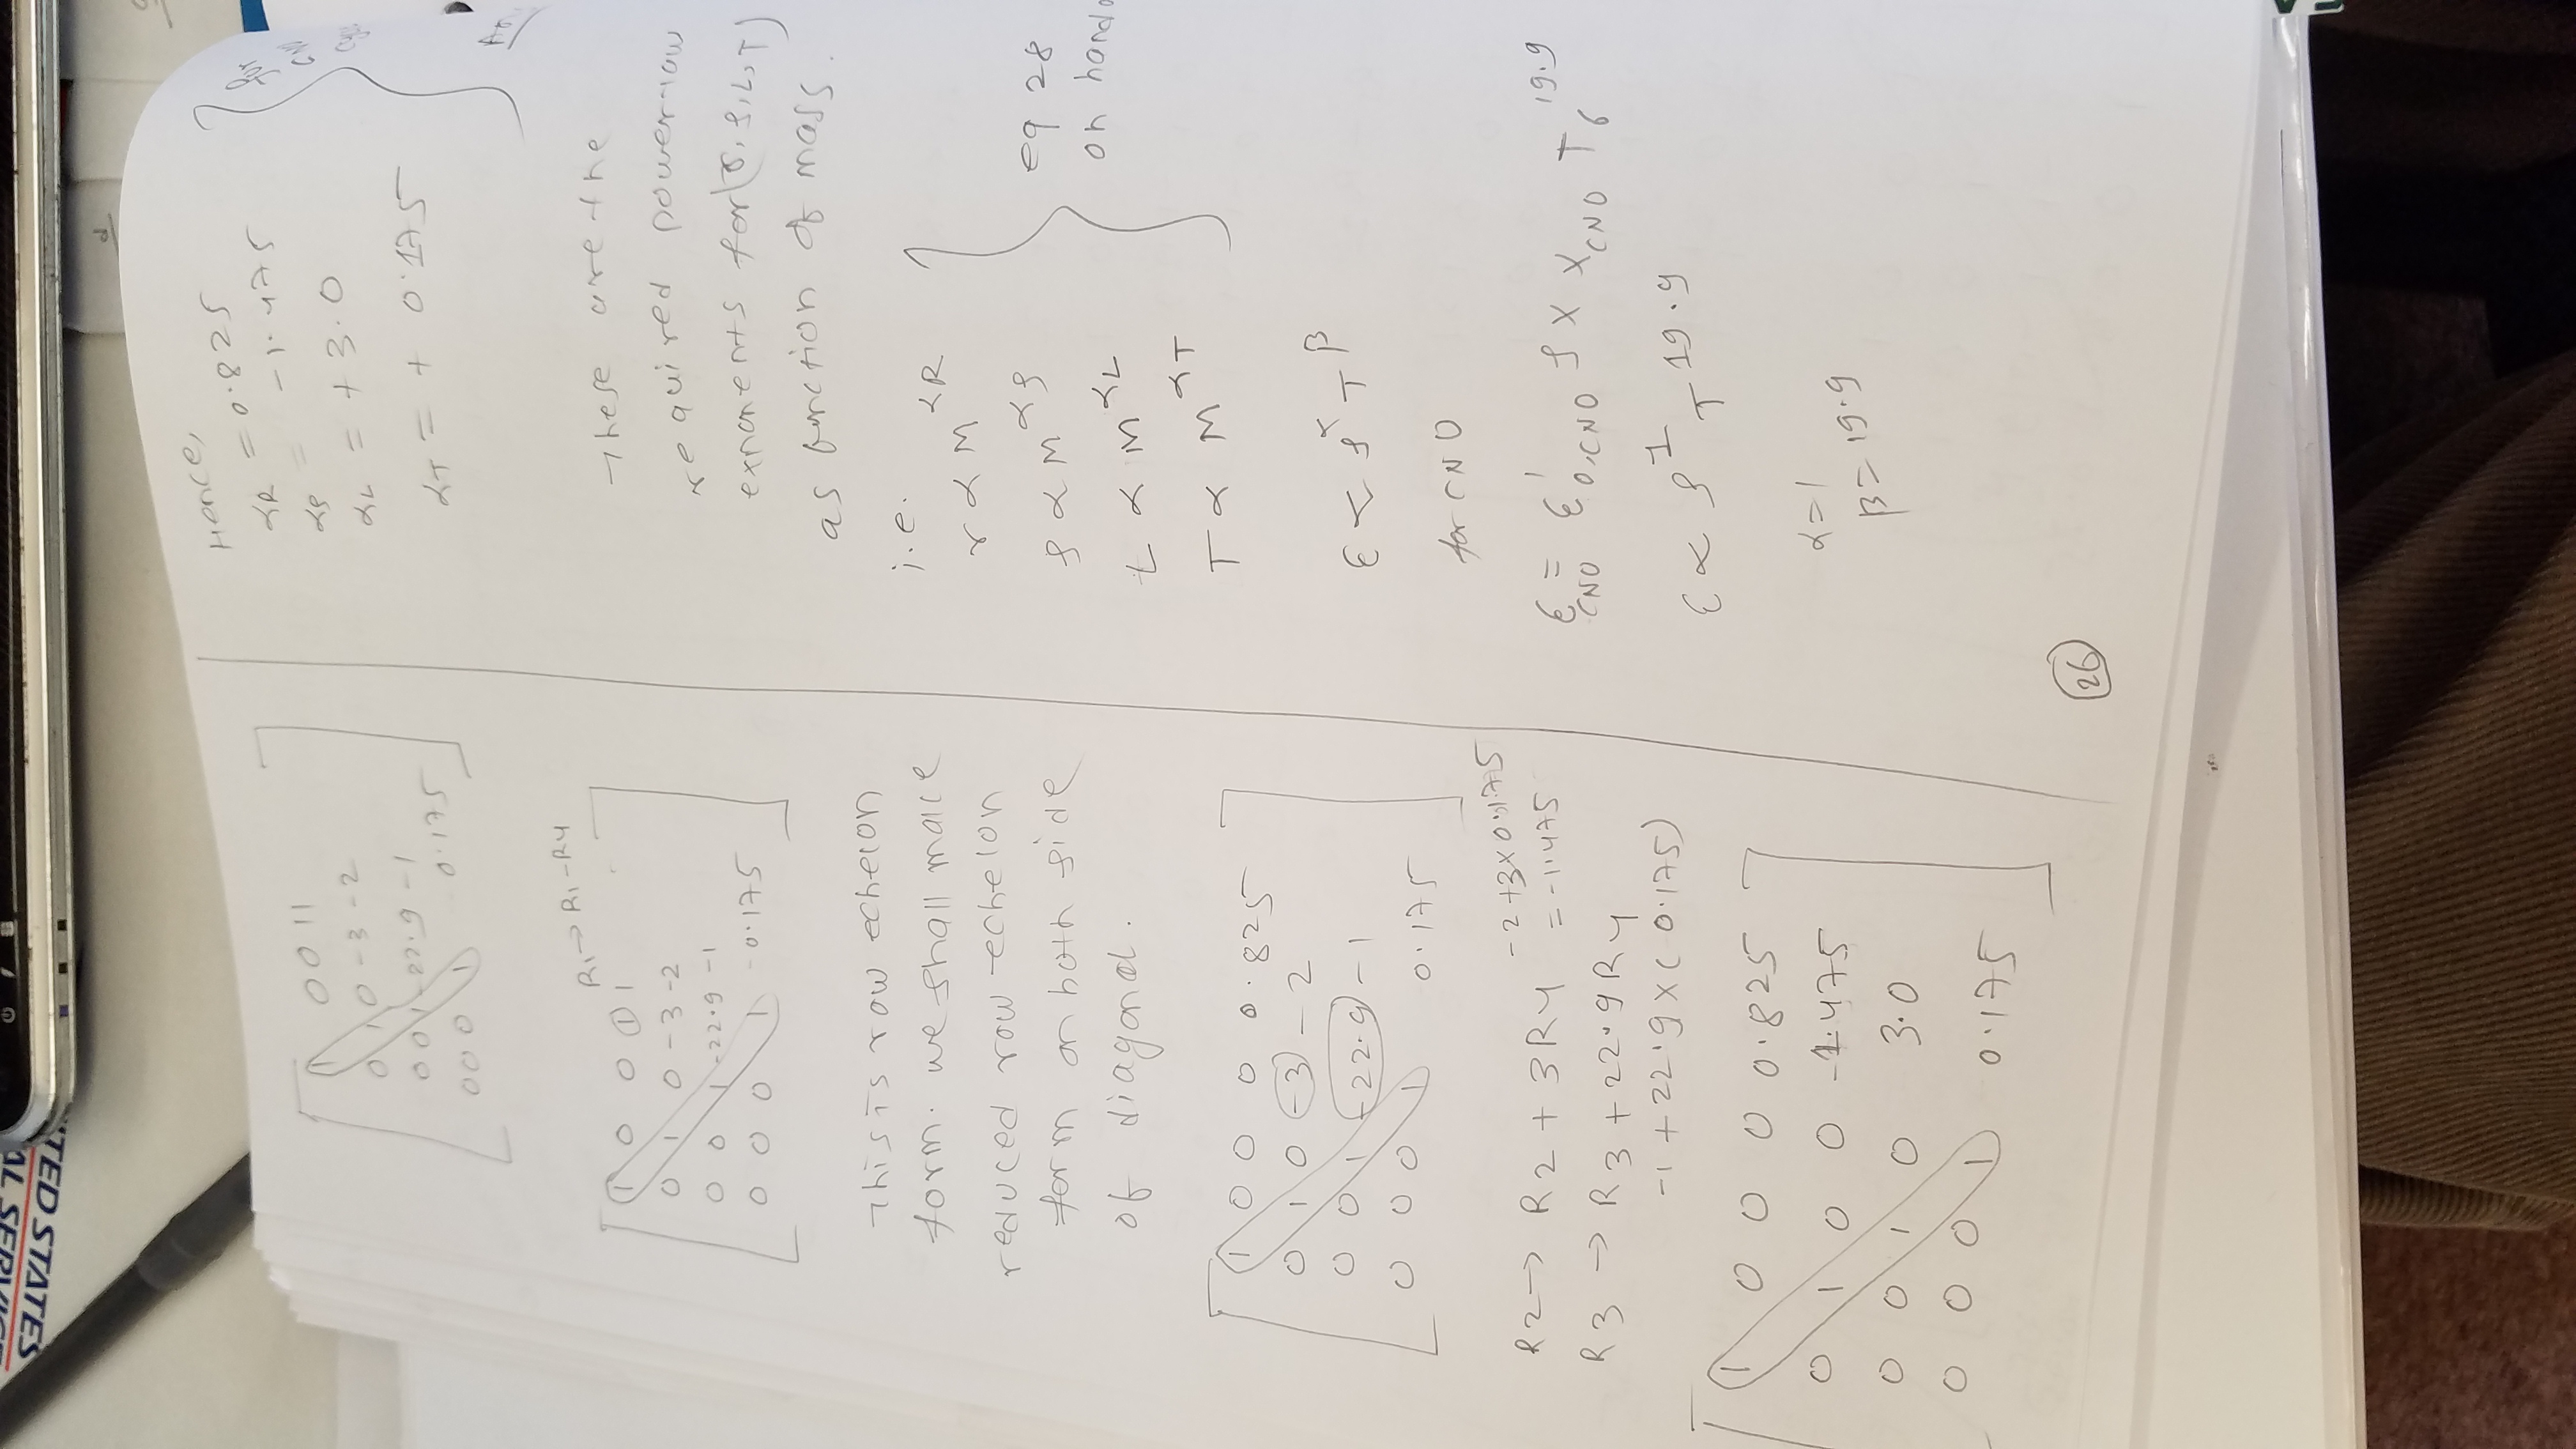 UNITED STATES
Hence,
αR = 0.825
αρ = -1.475
αL = +3.0
αT = + 0.175
for
1 0 0 1 1
0 1 0 -3 -2
0 0 1 -22.9 -1
0 0 0 1 0.175
R1 → R1 - R4
1 0 0 1 1
0 1 0 -3 -2
0 0 1 -22.9 -1
0 0 0 1 0.175
This is row echelon
form. we shall make
reduced row echelon
form on both side
of diagonal.
1 0 0 0 0.825
0 1 0 -3 -2
0 0 1 -22.9 -1
0 0 0 1 0.175
R2 → R2 + 3R4 -2+3×0.175
= -1.475
R3 → R3 + 22.9 R4
-1 + 22.9 × (0.175)
1 0 0 0 0.825
0 1 0 0 -1.475
0 0 1 0 3.0
0 0 0 1 0.175
These are the
required power-law
exponents for (r, ρ, L, T)
as function of mass.
i.e.
r ∝ M^αR
ρ ∝ M^αρ
L ∝ M^αL
T ∝ M^αT
eq 28
on
ε ∝ ρ^α T^β
for CNO
ε_CNO = ε'_0,CNO ρ X X_CNO T_6^19.9
ε ∝ ρ^1 T^19.9
α = 1
β = 19.9
26